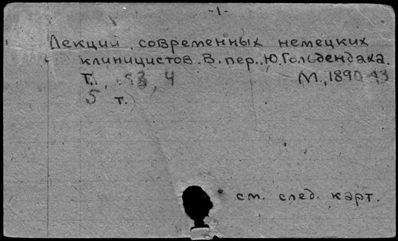 -1-
Лекции современных немецких
клиницистов. В. пер. Ю. Гольдендаха.
Т. 4 М, 1890-93
5 т.
см. след. карт.